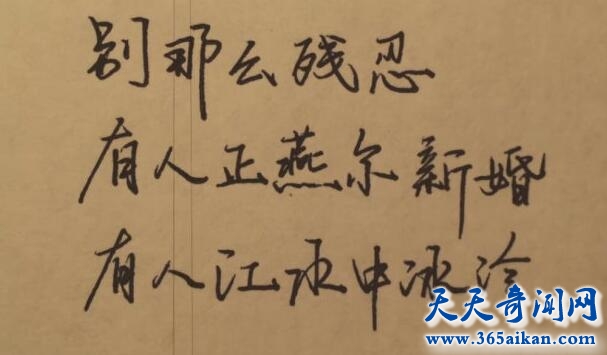 别那么残忍
有人正燕尔新婚
有人江水中冰冷
天天奇闻网
www.365aikan.com